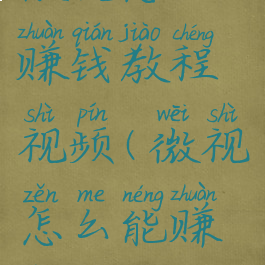 zhuàn qián jiào chéng
赚钱教程
shì pín wēi shì
视频(微视
zěn me néng zhuàn
怎么能赚